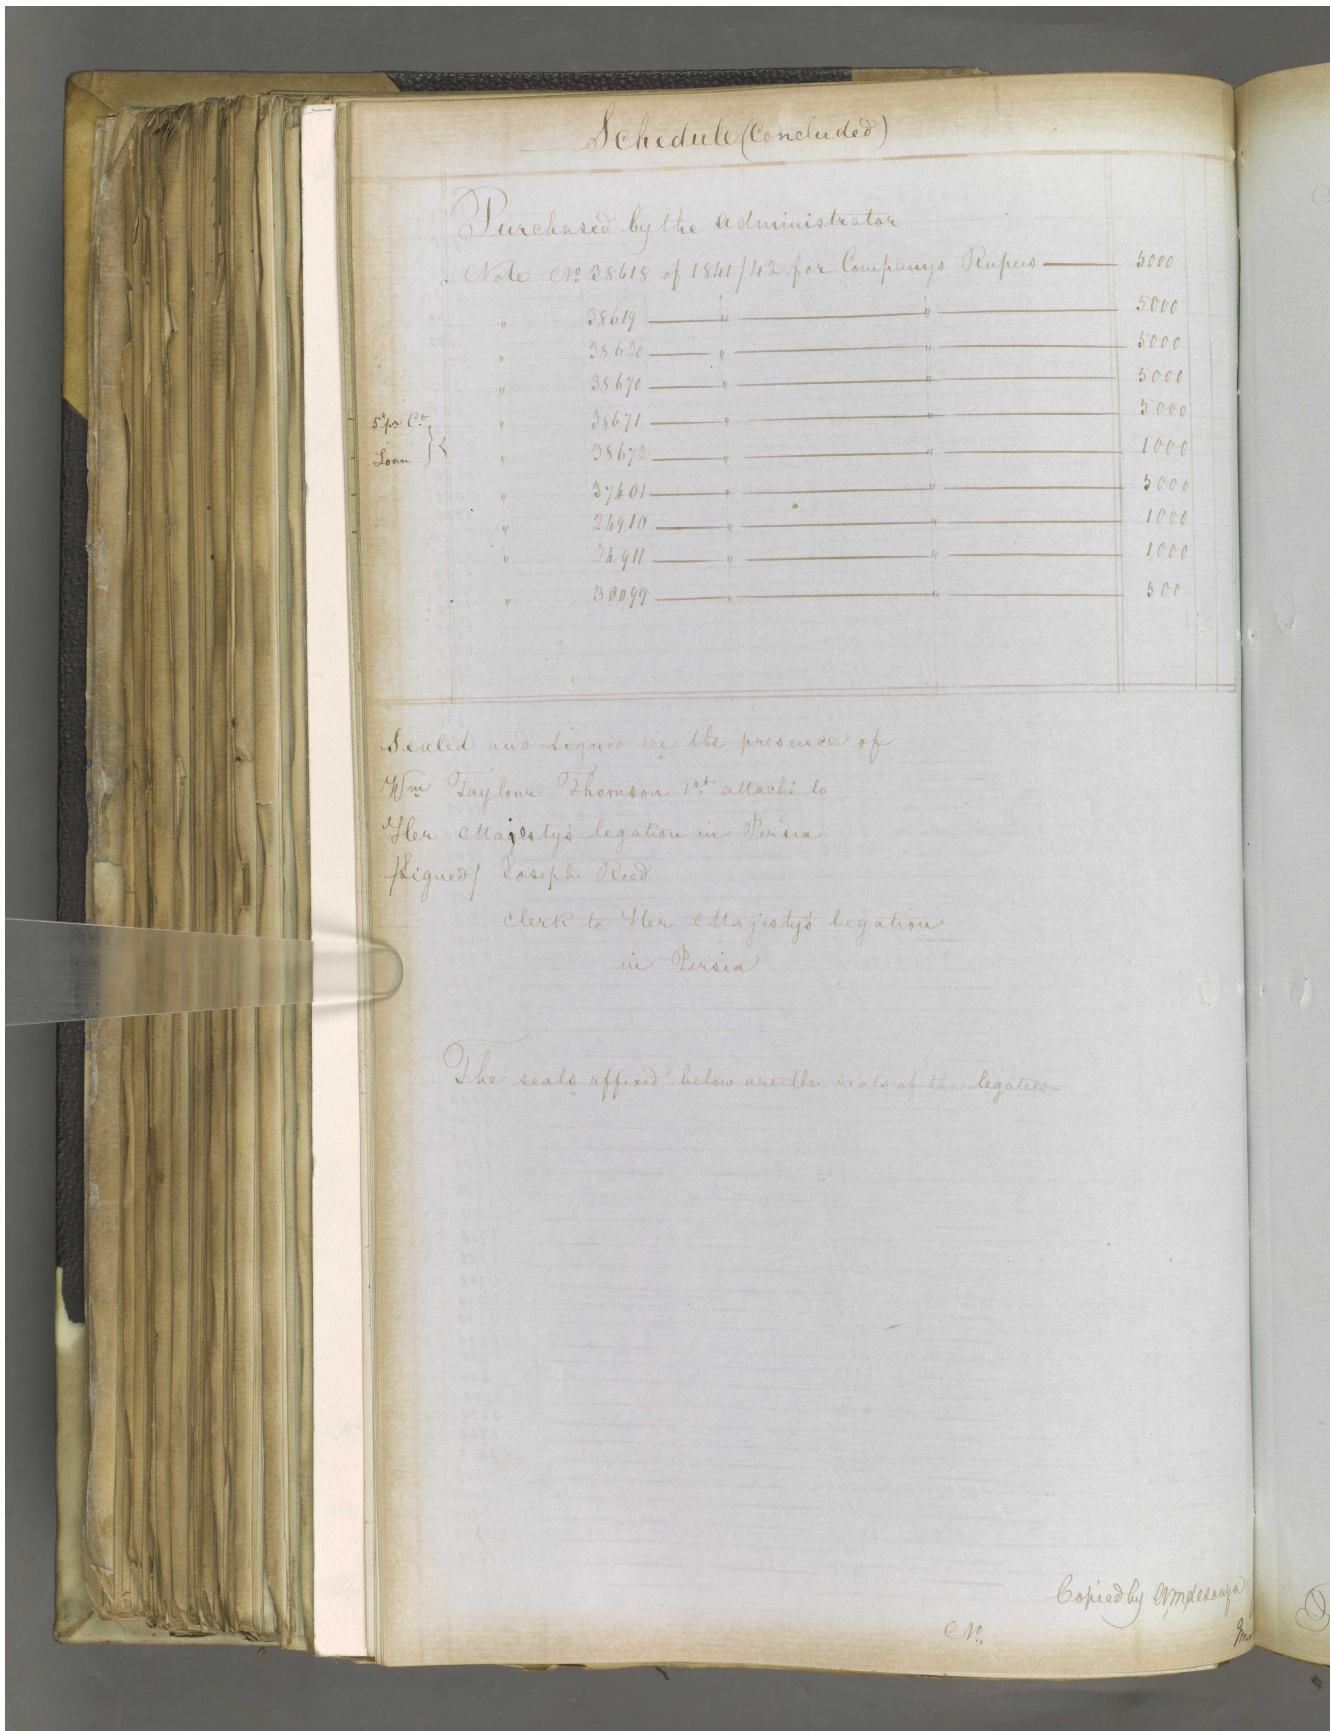 Schedule (Concluded)
Purchased by the administrator
Note No. 38618 of 1841/42 for Companys Rupees — 5000
" 38619 — " — " — 5000
" 38620 — " — " — 5000
" 38670 — " — " — 5000
5 pr Ct " 38671 — " — " — 5000
Loan " 38672 — " — " — 1000
" 37401 — " — " — 5000
" 24910 — " — " — 1000
" 24911 — " — " — 1000
" 30099 — " — " — 500
Sealed and signed in the presence of
Wm Taylour Thomson 1st attaché to
Her Majesty's legation in Persia
/Signed/ Joseph Reed
Clerk to Her Majesty's legation
in Persia
The seals affixed below are the seals of the legatees
Copied by
No.